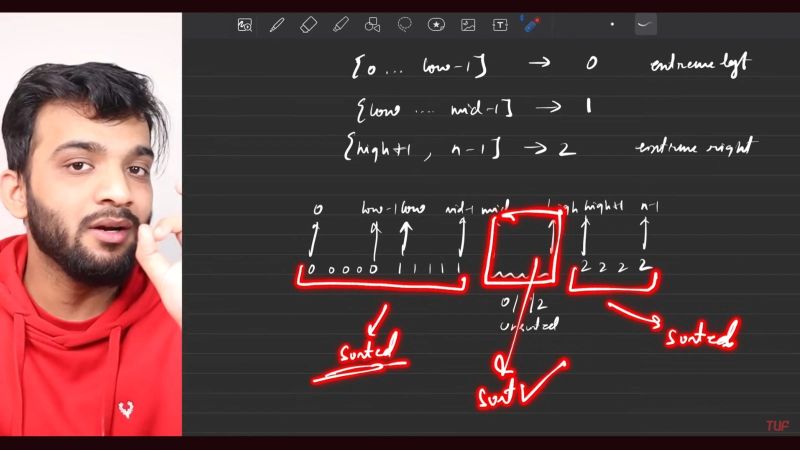 [0 ... low-1] → 0 extreme left
[low .... mid-1] → 1
[high+1, n-1] → 2 extreme right
0 low-1 low mid-1 mid high high+1 n-1
0 0 0 0 0 1 1 1 1 1 2 2 2 2
0/1/2
unsorted
sorted
sorted
sort
TUF